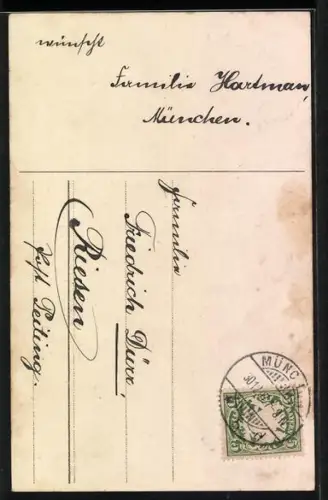 wünscht
Familie Hartman,
München.
Familie
Friedrich Dürr,
Riesen
Post Peiting.
MÜNC